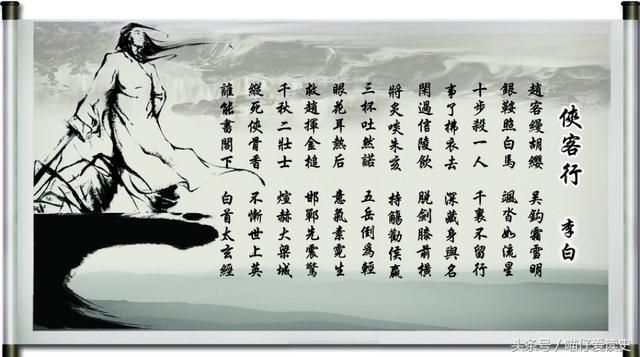 俠客行 李白
趙客縵胡纓 吳鈎霜雪明
銀鞍照白馬 颯沓如流星
十步殺一人 千裏不留行
事了拂衣去 深藏身與名
閑過信陵飲 脫劍膝前橫
將炙啖朱亥 持觴勸侯嬴
三杯吐然諾 五岳倒爲輕
眼花耳熱后 意氣素霓生
救趙揮金槌 邯鄲先震驚
千秋二壯士 煊赫大梁城
縱死俠骨香 不慚世上英
誰能書閣下 白首太玄經
头条号 / 喵仔爱读史